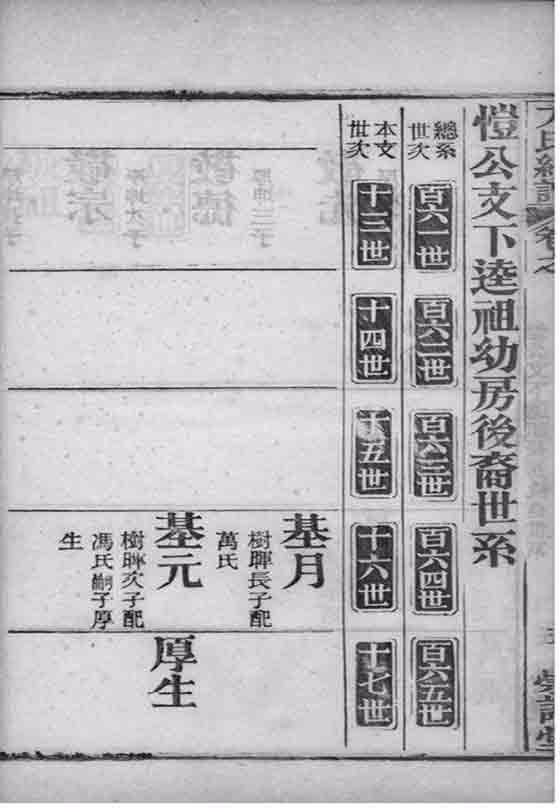 愷公文下逵祖幼房後裔世系
總系世次
百六一世
百六二世
百六三世
百六四世
百六五世
本文世次
十三世
十四世
十五世
十六世
十七世
基月
樹暉長子配
萬氏
基元
樹暉次子配
馮氏嗣子厚
生
厚生